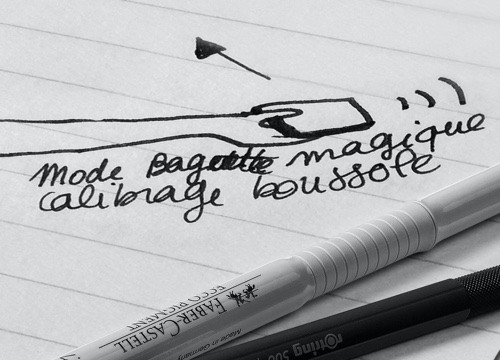 Mode Baguette magique
calibrage boussole
ECCO PIGMENT
FABER-CASTELL
Made in Germany
rotring